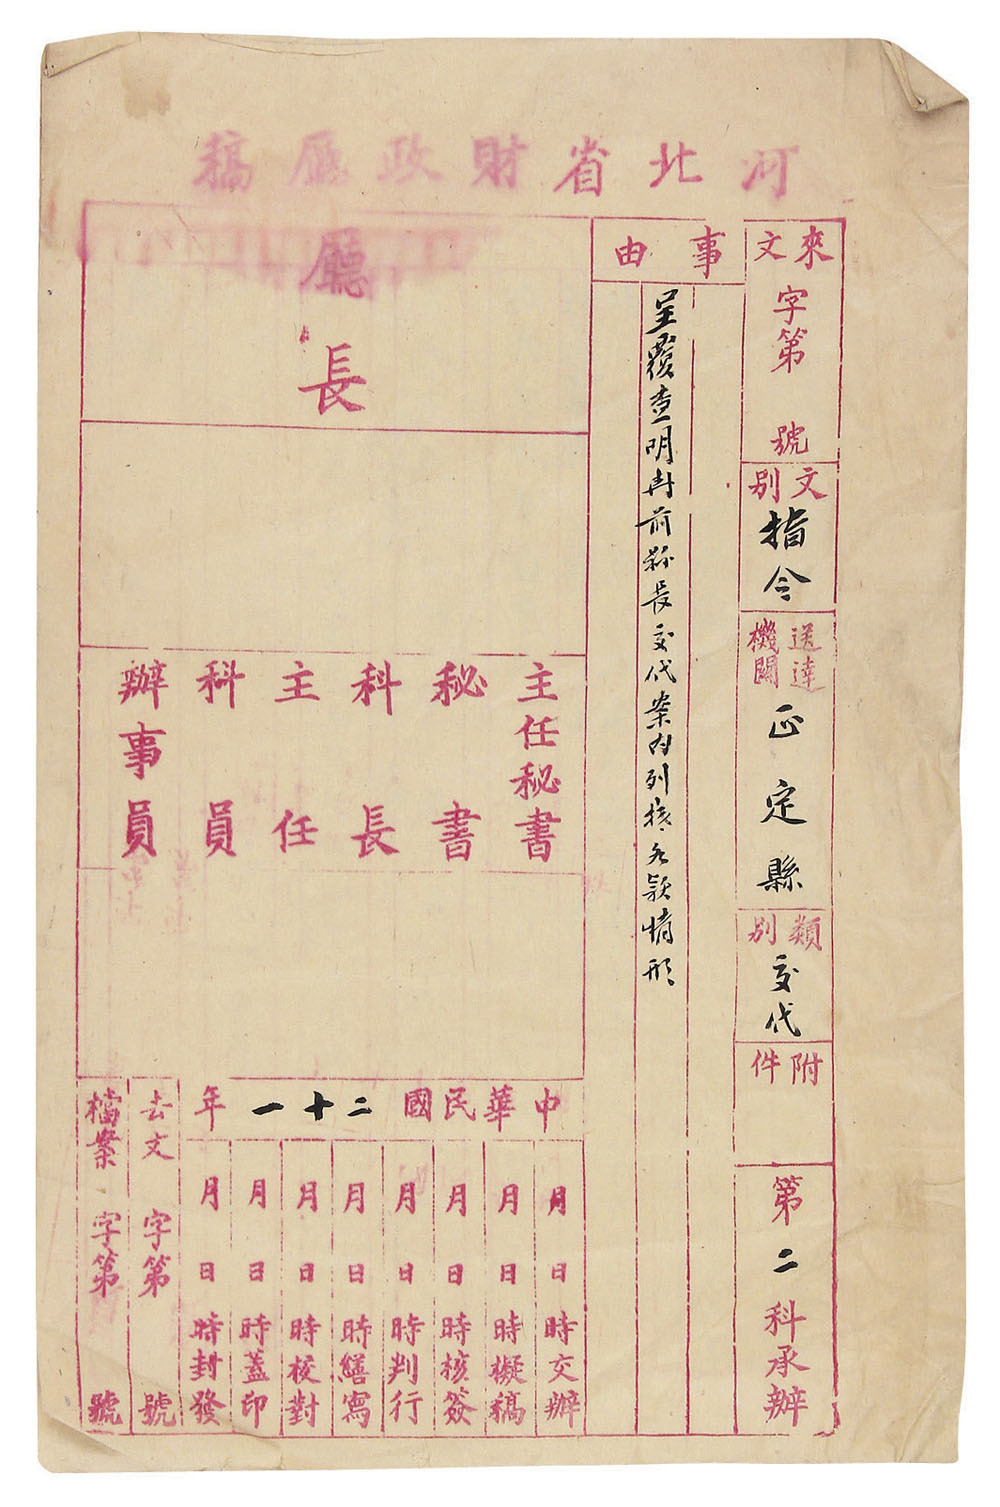 河北省財政廳稿
來文
字第　號
文別
指令
送達機關
正定縣
類別
交代
附件
第二科承辦
事由
呈覆查明冉前縣長交代案內列核各款情形
廳長
主任秘書
秘書
科長
主任
科員
辦事員
中華民國二十一年
月　日　時交辦
月　日　時擬稿
月　日　時核簽
月　日　時判行
月　日　時繕寫
月　日　時校對
月　日　時蓋印
月　日　時封發
去文　字第　號
檔案　字第　號